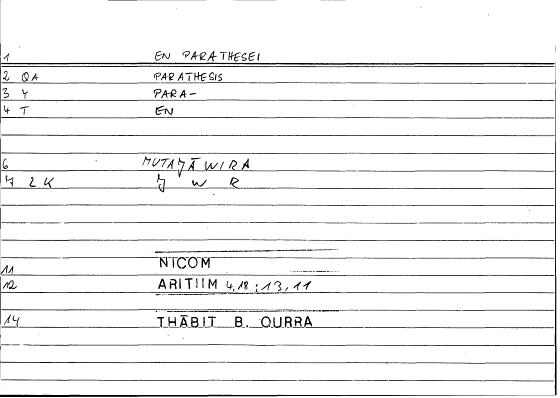 1 EN PARATHESEI
2 QA PARATHESIS
3 Y PARA-
4 T EN
6 MUTAJĀWIRA
7 2 K J W R
11 NICOM
12 ARITIIM 4,18; 13,11
14 THĀBIT B. QURRA